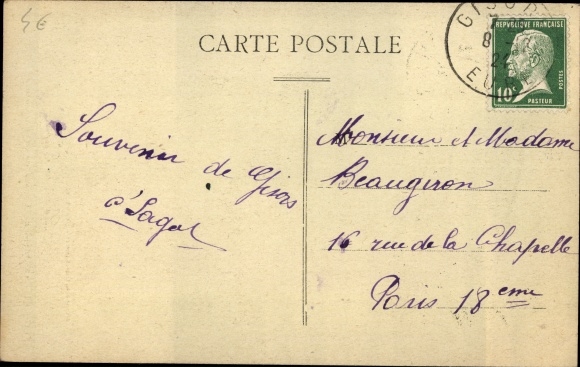 4€
CARTE POSTALE
GISORS
8
22
EURE
REPUBLIQUE FRANÇAISE
POSTES
10c
PASTEUR
Souvenir de Gisors
Monsieur et Madame
Beaugiron
16 rue de la Chapelle
Paris 18eme